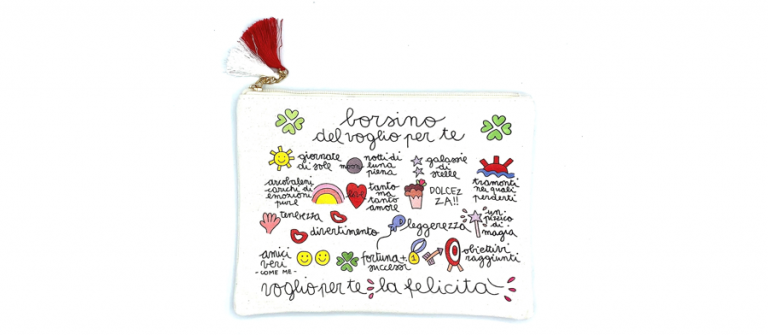 borsino
del voglio per te
giornate di sole
moon
notti di luna piena
galassie di stelle
tramonti nei quali perderti
arcobaleni carichi di emozioni pure
love
tanto ma tanto amore
DOLCEZZA!!
tenerezza
divertimento
leggerezza
un pizzico di magia
amici veri
- COME ME -
fortuna + successi
1
obiettivi raggiunti
voglio per te la felicità